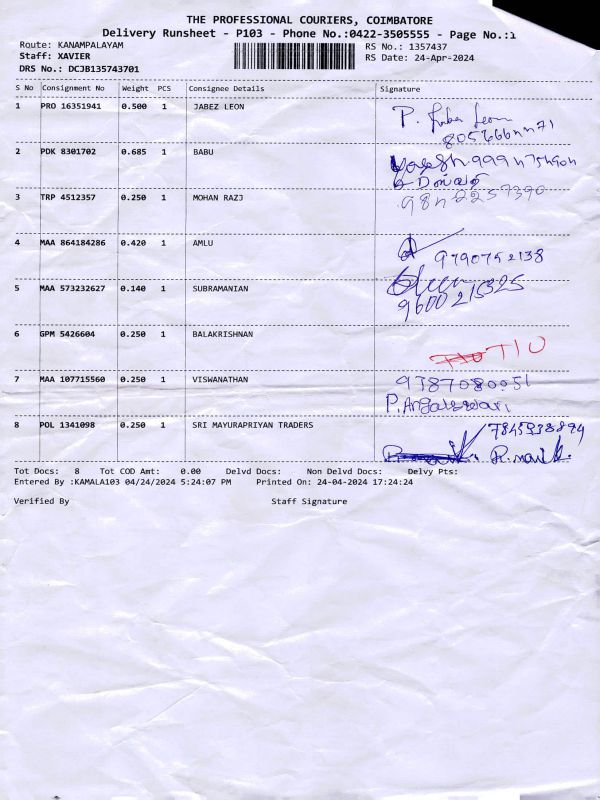 THE PROFESSIONAL COURIERS, COIMBATORE
Delivery Runsheet - P103 - Phone No.:0422-3505555 - Page No.:1
Route: KANAMPALAYAM RS No.: 1357437
Staff: XAVIER RS Date: 24-Apr-2024
DRS No.: DCJB135743701
S No Consignment No Weight PCS Consignee Details Signature
1 PRO 16351941 0.500 1 JABEZ LEON P. Jabez Leon
2 PDK 8301702 0.685 1 BABU
3 TRP 4512357 0.250 1 MOHAN RAZJ
4 MAA 864184286 0.420 1 AMLU
9790752138
5 MAA 573232627 0.140 1 SUBRAMANIAN
9600215325
6 GPM 5426604 0.250 1 BALAKRISHNAN
7 MAA 107715560 0.250 1 VISWANATHAN 9387080951
P. Angaleswari
8 POL 1341098 0.250 1 SRI MAYURAPRIYAN TRADERS
Tot Docs: 8 Tot COD Amt: 0.00 Delvd Docs: Non Delvd Docs: Delvy Pts:
Entered By :KAMALA103 04/24/2024 5:24:07 PM Printed On: 24-04-2024 17:24:24
Verified By Staff Signature